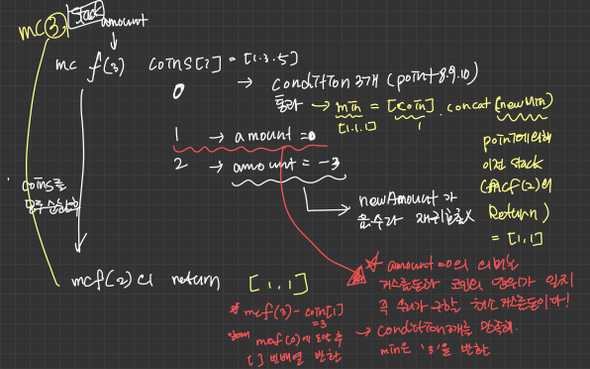 mc(3) stack
amount
mcf(3) coins[i] = [1.3.5]
0 → condition 3개 (point 8.9.10)
통과 → min = [coin].concat(newMin)
[1.1.1] 1
1 → amount = 0
point에의해
2 → amount = -3
이전 stack
(mcf(2)의
Return)
= [1,1]
coins를
모두 순회후
newAmount가
음수라 재귀호출X
mcf(2)의 return [1,1]
* mcf(3) - coin[1]
= 3
mcf(0)에 도달 후
[] 빈배열 반환
* amount = 0의 의미는
즉 우리가 구할 최소 거스름돈이다!
→ condition 3개를 만족해.
min은 '3'을 반환